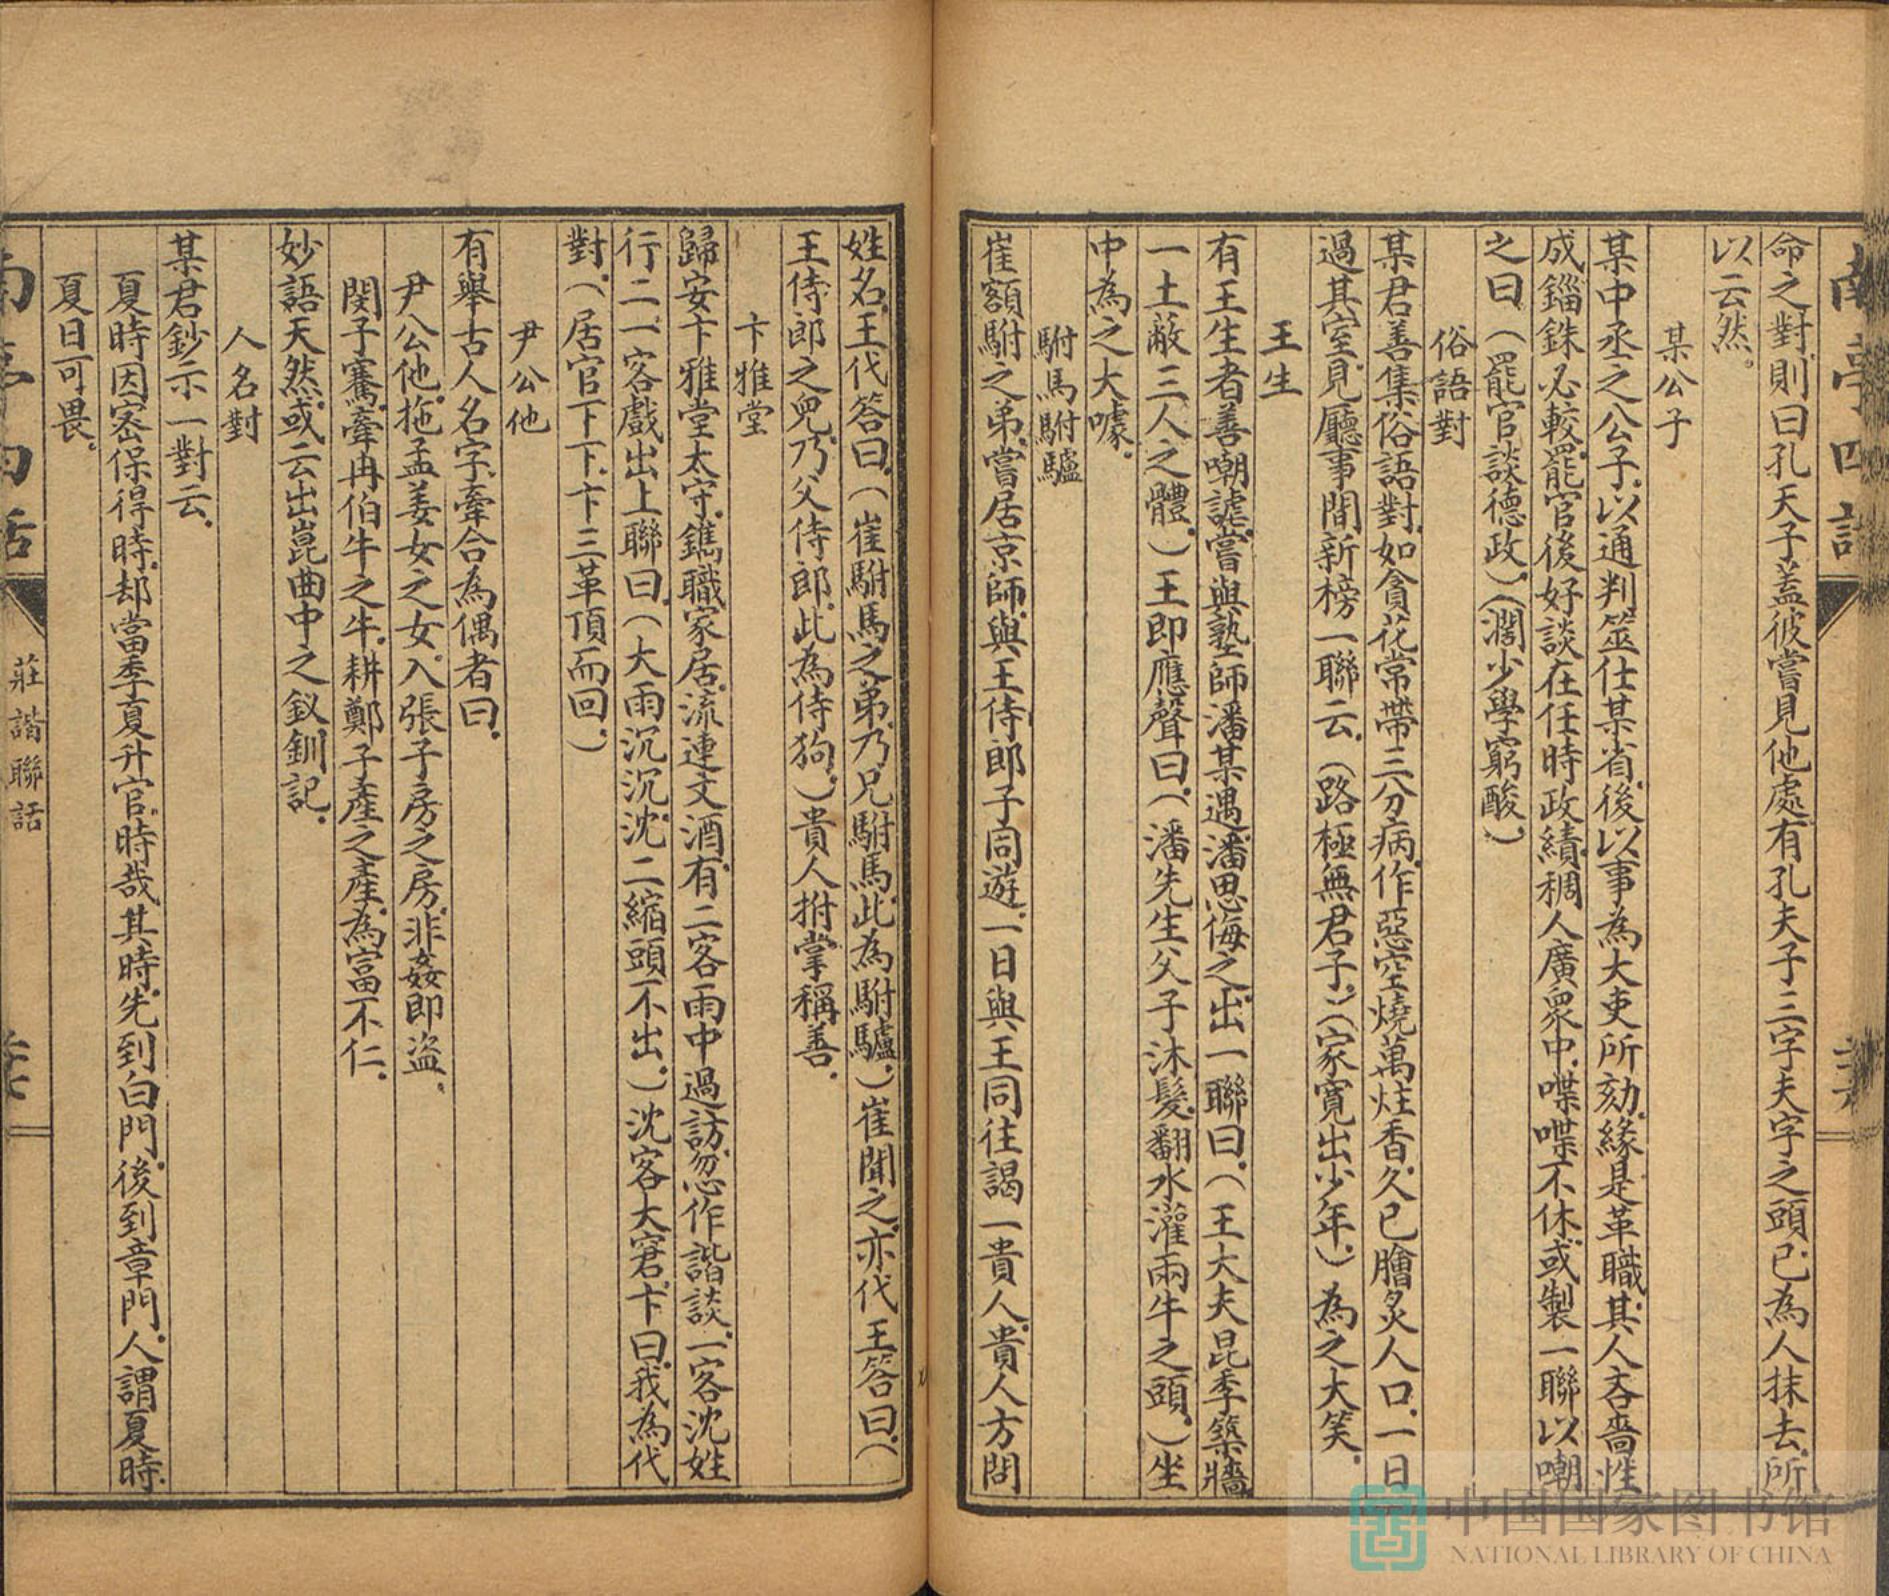 命之對則曰孔天子蓋彼嘗見他處有孔夫子三字夫字之頭已為人抹去所
以云然。
某公子
某中丞之公子以通判筮仕某省後以事為大吏所劾緣是革職其人吝嗇性
成錙銖必較罷官後好談在任時政績稠人廣眾中喋喋不休或製一聯以嘲
之曰（罷官談德政）（濶少學窮酸）
俗語對
某君善集俗語對如貪花常帶三分病作惡空燒萬炷香久已膾炙人口一日
過其室見廳事間新榜一聯云（路極無君子）（家寬出少年）為之大笑。
王生
有王生者善嘲謔嘗與塾師潘某遇潘思侮之出一聯曰（王大夫昆季築牆
一土蔽三人之體）王即應聲曰（潘先生父子沐髮翻水灌兩牛之頭）坐
中為之大噱。
駙馬駙驢
崔額駙之弟嘗居京師與王侍郎子同遊一日與王同往謁一貴人貴人方問
姓名王代答曰（崔駙馬之弟乃兄駙馬此為駙驢）崔聞之亦代王答曰（
王侍郎之兒乃父侍郎此為侍狗）貴人拊掌稱善。
卞雅堂
歸安卞雅堂太守鐫職家居流連文酒有二客雨中過訪忽作諧談一客沈姓
行二一客戲出上聯曰（大雨沉沉沈二縮頭不出）沈客大窘卞曰我為代
對（居官下下卞三革頂而回）
尹公他
有舉古人名字牽合為偶者曰
尹公他拖孟姜女之女入張子房之房非姦即盜
閔子騫牽冉伯牛之牛耕鄭子產之產為富不仁
妙語天然或云出崑曲中之釵釧記
人名對
某君鈔示一對云
夏時因密保得時却當季夏升官時哉其時先到白門後到章門人謂夏時
夏日可畏。
南亭四話
莊諧聯話
中国国家图书馆
NATIONAL LIBRARY OF CHINA